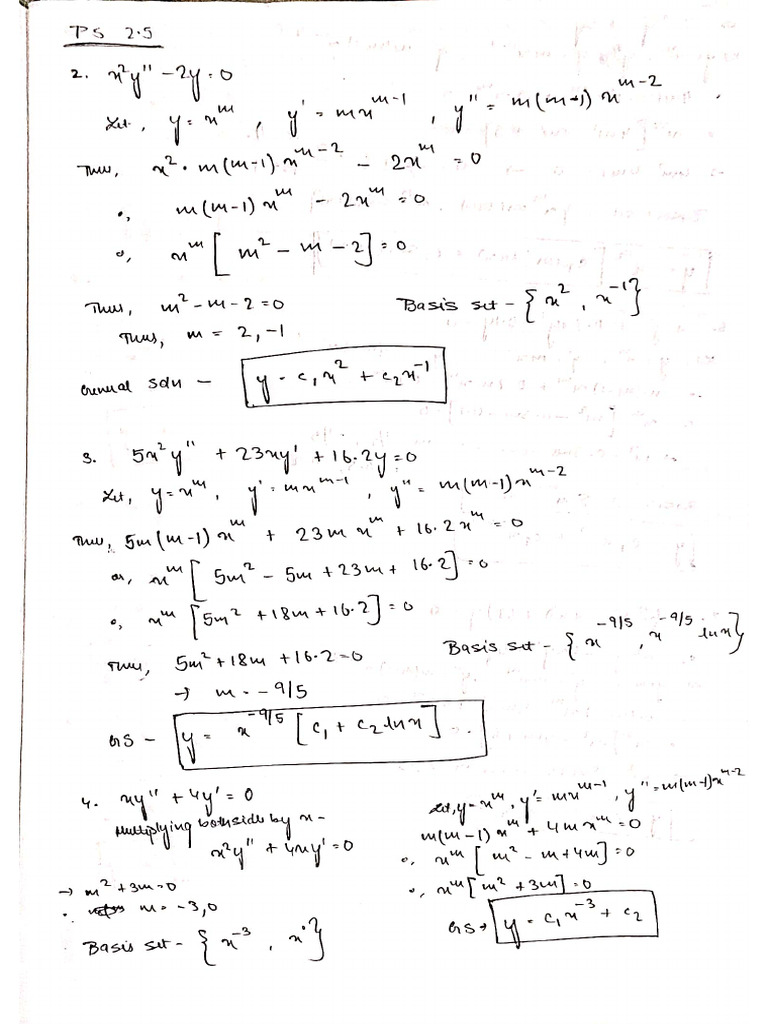 PS 2.5
2. x²y'' - 2y = 0
Let, y = x^m , y' = mx^{m-1} , y'' = m(m-1) x^{m-2}
Thus, x² · m(m-1) x^{m-2} - 2x^m = 0
or, m(m-1) x^m - 2x^m = 0
or, x^m [m² - m - 2] = 0
Thus, m² - m - 2 = 0 Basis set - {x² , x^{-1}}
Thus, m = 2, -1
General soln - y = c₁x² + c₂x^{-1}
3. 5x²y'' + 23xy' + 16.2y = 0
Let, y = x^m, y' = mx^{m-1} , y'' = m(m-1)x^{m-2}
Thus, 5m(m-1)x^m + 23m x^m + 16.2x^m = 0
or, x^m [5m² - 5m + 23m + 16.2] = 0
or, x^m [5m² + 18m + 16.2] = 0
Thus, 5m² + 18m + 16.2 = 0 Basis set - {x^{-9/5} , x^{-9/5} ln x}
→ m = -9/5
GS - y = x^{-9/5} [c₁ + c₂ ln x]
4. xy'' + 4y' = 0
Multiplying both side by x -
x²y'' + 4xy' = 0
Let, y = x^m , y' = mx^{m-1} , y'' = m(m-1)x^{m-2}
m(m-1)x^m + 4mx^m = 0
or, x^m [m² - m + 4m] = 0
or, x^m [m² + 3m] = 0
→ m² + 3m = 0
m = -3, 0
Basis set - {x^{-3} , x^0}
GS → y = c₁x^{-3} + c₂